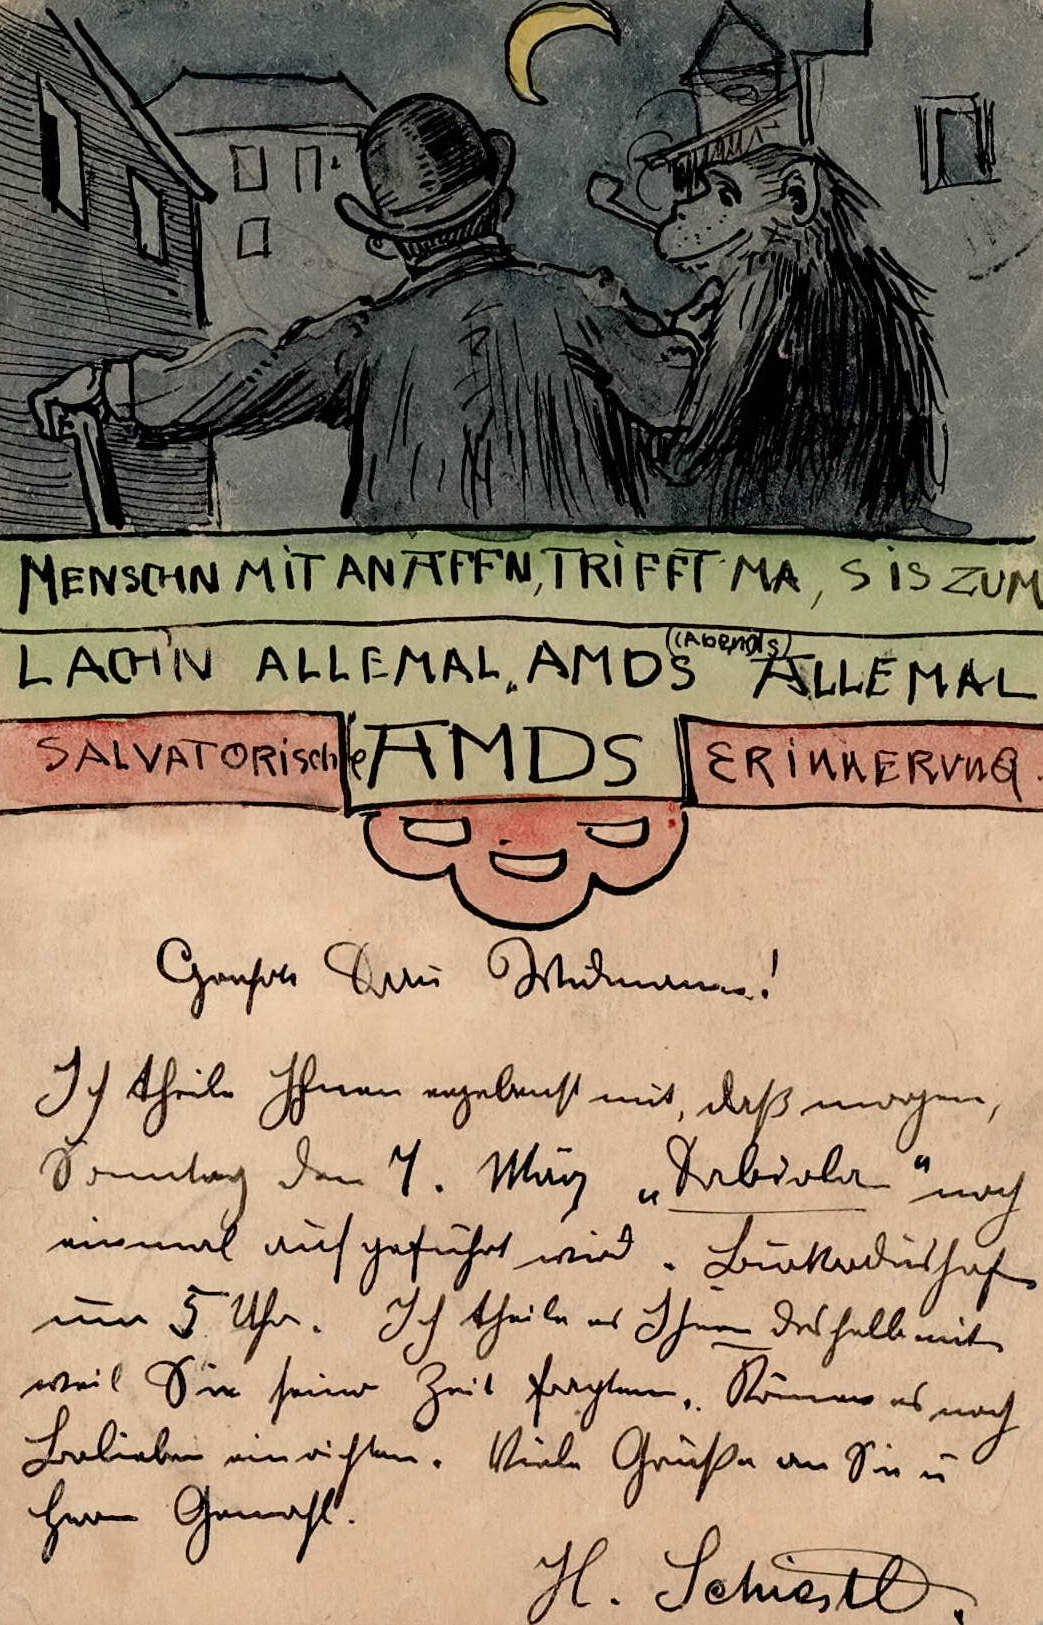 MENSCHN MIT AN AFFN, TRIFFT MA, S IS ZUM
LACH'N ALLEMAL, AMDS (Abends) ALLEMAL
SALVATORische AMDS ERINNERUNG.
Geehrte Frau Widmann!
Ich theile Ihnen ergebenst mit, daß morgen,
Sonntag den 7. März „Fabiola" noch
einmal aufgeführt wird. Burkardushof
um 5 Uhr. Ich theile es Ihnen deshalb mit
weil Sie seiner Zeit fragten. Können es nach
Belieben einrichten. Viele Grüße an Sie u
Herrn Gemahl.
H. Schiestl.